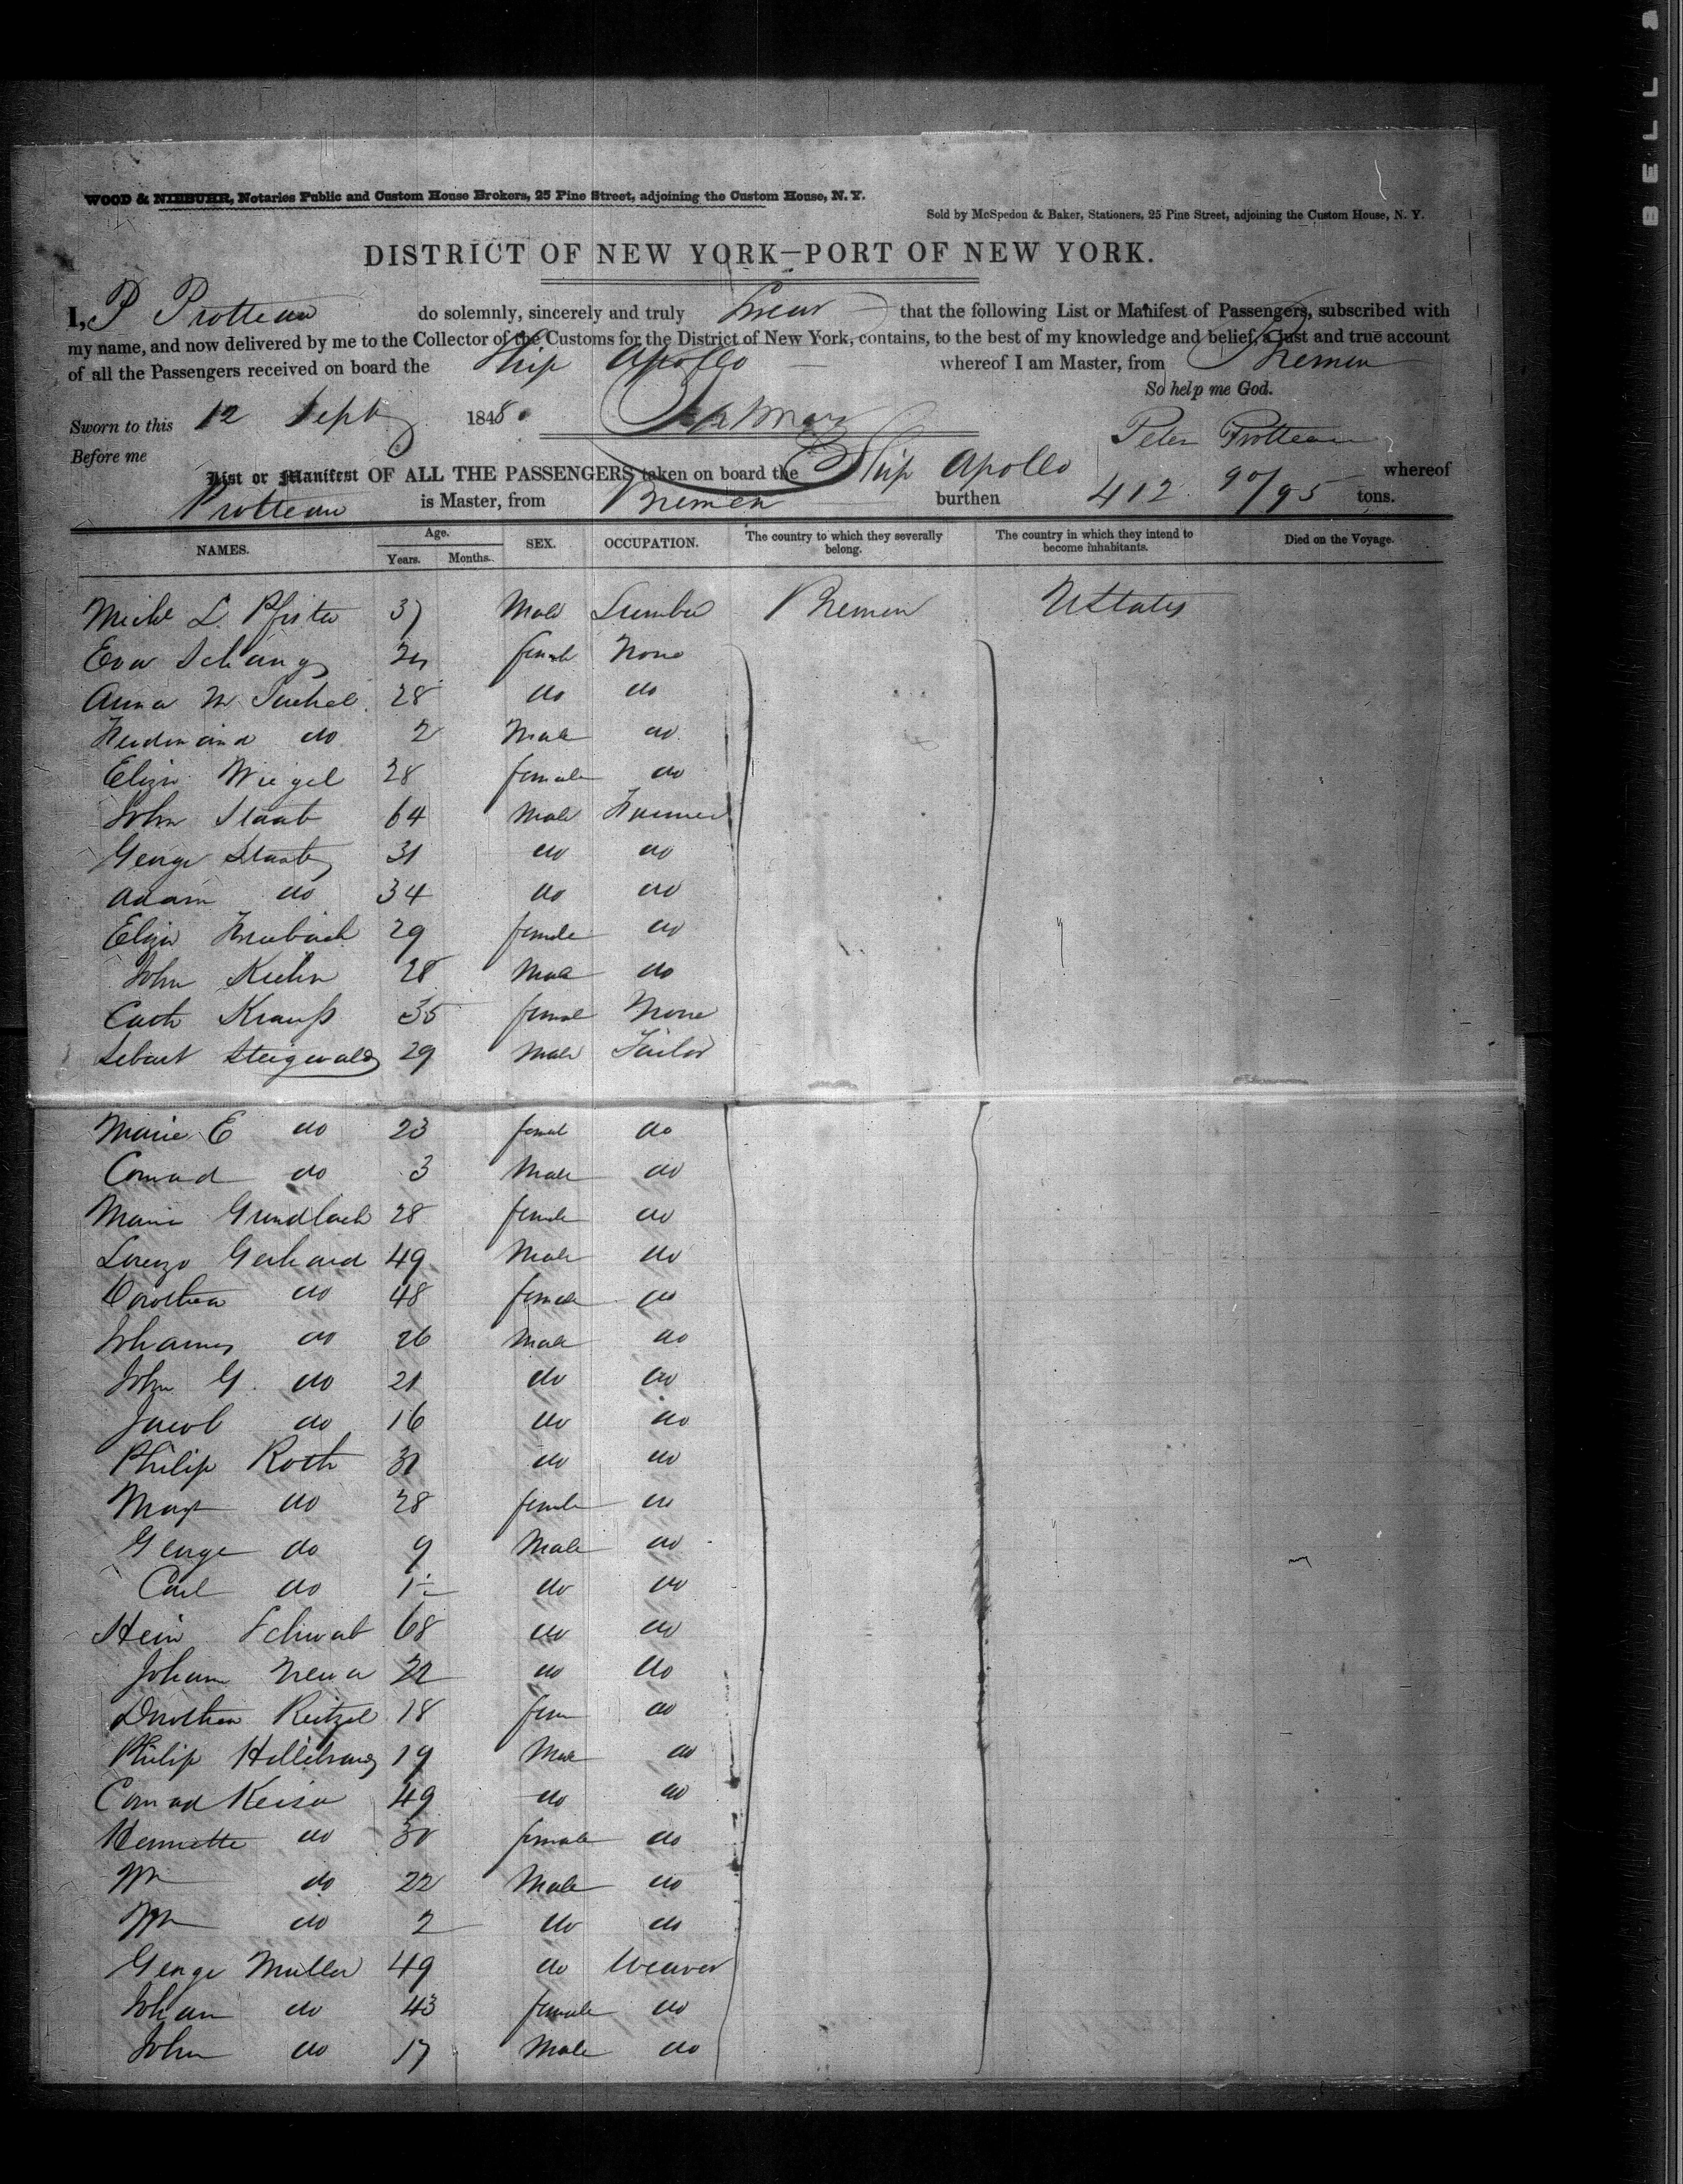 BELL &
WOOD & NIEBUHR, Notaries Public and Custom House Brokers, 25 Pine Street, adjoining the Custom House, N. Y.
Sold by McSpedon & Baker, Stationers, 25 Pine Street, adjoining the Custom House, N. Y.
DISTRICT OF NEW YORK—PORT OF NEW YORK.
I, P Protteau do solemnly, sincerely and truly Swear that the following List or Manifest of Passengers, subscribed with
my name, and now delivered by me to the Collector of the Customs for the District of New York, contains, to the best of my knowledge and belief, a just and true account
of all the Passengers received on board the Ship Apollo whereof I am Master, from Bremen
So help me God.
Sworn to this 12 Sept 1848
Peter Protteau
Before me
List or Manifest OF ALL THE PASSENGERS taken on board the Ship Apollo whereof
Protteau is Master, from Bremen burthen 412 90/95 tons.
NAMES. Age. Years. Months. SEX. OCCUPATION. The country to which they severally belong. The country in which they intend to become inhabitants. Died on the Voyage.
Michl L. Pfister 37 Male Bremen UStates
Eva Schang female None
Anna M 28 do do
Ferdinand do 2 Male do
Eliza Wiegel 28 female do
John Staab 64 Male Farmer
George Staab 31 do do
Adam do 34 do do
Eliza 29 female do
John Kuhn 28 Male do
Cath Krauß 35 female None
Sebast Steigwald 29 Male Tailor
Marie E do 23 femal do
Conrad do 3 Male do
Maria Grundlach 28 female do
Lorenzo Gerhard 49 Male do
Dorothea do 48 female do
Johannes do 26 Male do
John G. do 21 do do
Jacob do 16 do do
Philip Roth 31 do do
Margt do 28 female do
George do 9 Male do
Carl do 1 do do
Hein Schwab 68 do do
Johann 22 do do
Dorothea Reitzel 18 fem do
Philip 19 Male do
Conrad Keiser 49 do do
Henriette do 30 female do
Wm do 22 Male do
Wm do 2 do do
George Muller 49 do Weaver
Johan do 43 female do
John do 17 Male do